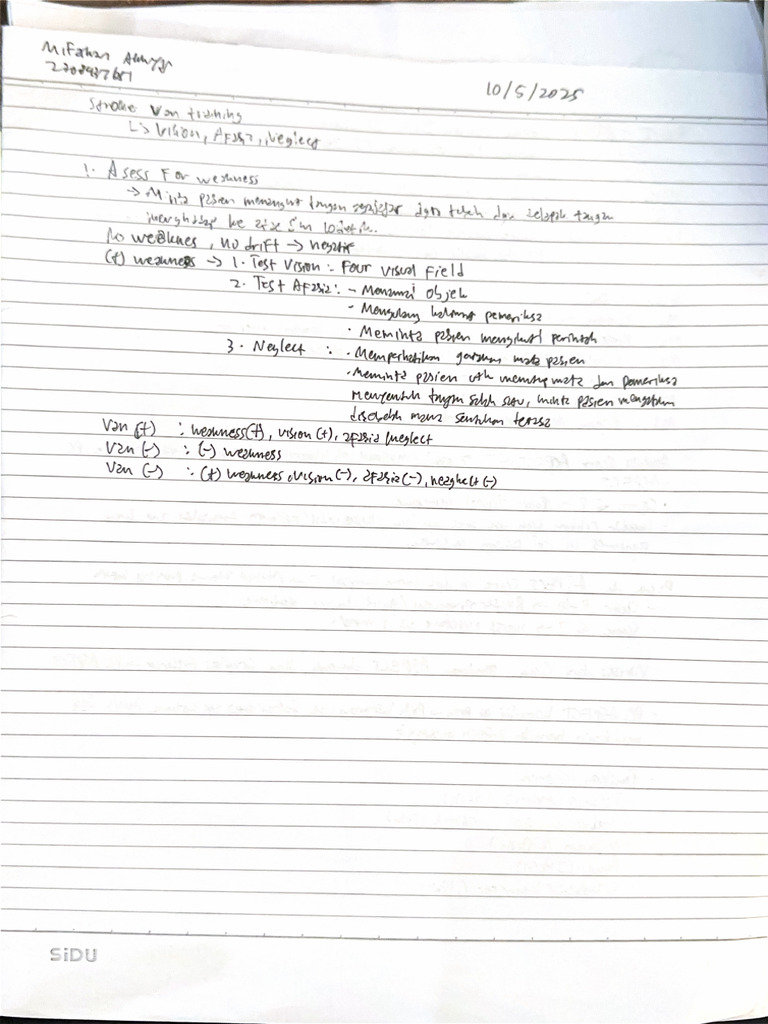 10/5/2025
Stroke Van training
↳ Vision, Afasia, Neglect
1. Asess For weakness
→ Minta pasien mengangkat tangan dan telapak tangan
menghadap ke
No weaknes, no drift → negatif
(+) weakness → 1. Test Vision : Four visual Field
2. Test Afasia : - Menamai Objek
- Mengulang kalimat pemeriksa
- Meminta pasien mengikuti perintah
3. Neglect : • Memperhatikan gerakan mata pasien
• Meminta pasien utk menutup mata dan pemeriksa
menyentuh tangan salah satu, minta pasien mengatakan
disebelah mana sentuhan terasa
Van (+) : weakness (+), vision (+), afasia / neglect
Van (-) : (-) weakness
Van (-) : (+) weakness, vision (-), afasia (-), neaglect (-)
SiDU